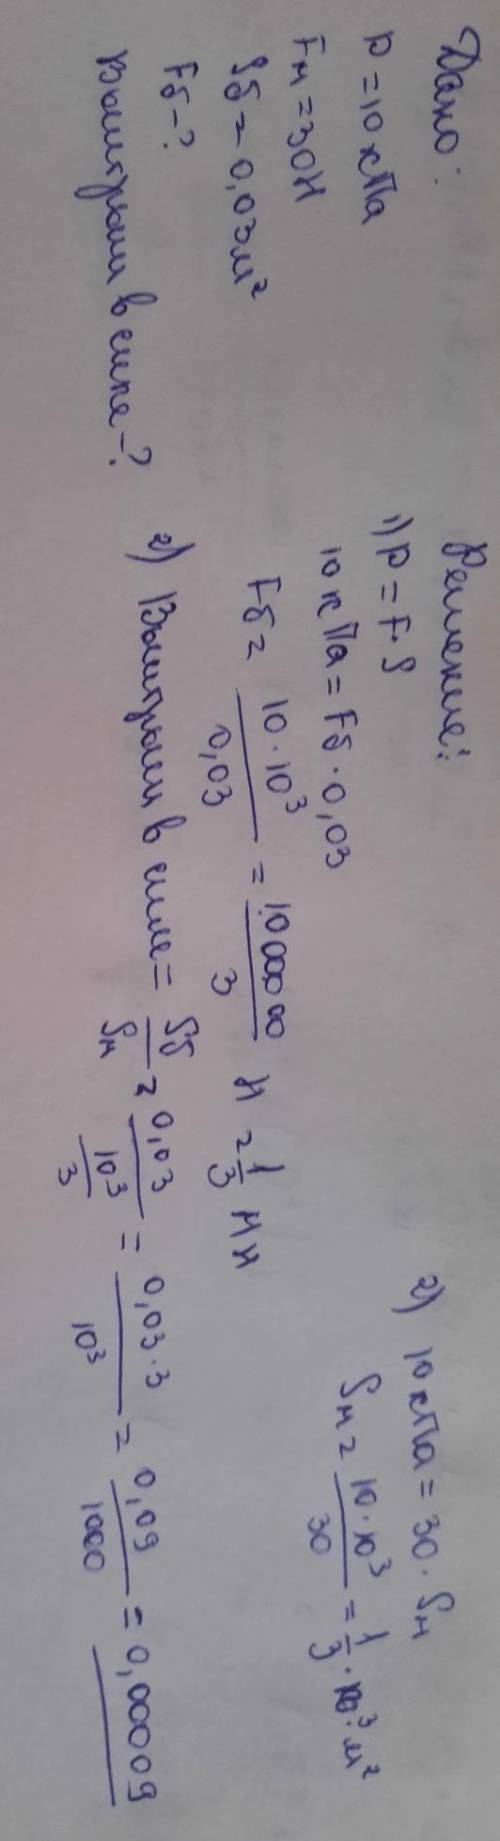 Дано:
p = 10 кПа
Fм = 30Н
Sб = 0,03м²
Fб - ?
Выигрыш в силе - ?
Решение:
1) p = F · S
10 кПа = Fб · 0,03
Fб = 10 · 10³ / 0,03 = 1000000 / 3 Н = 1/3 МН
2) 10 кПа = 30 · Sм
Sм = 10 · 10³ / 30 = 1/3 · 10³ м²
2) Выигрыш в силе = Sб / Sм = 0,03 / (10³ / 3) = 0,03 · 3 / 10³ = 0,09 / 1000 = 0,00009